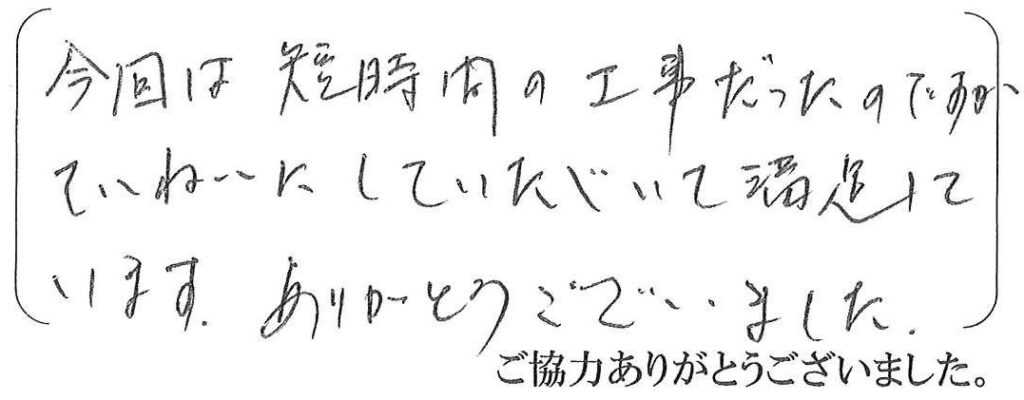 今回は短時間の工事だったのですが、
ていねいにしていただいて満足して
います。ありがとうございました。
ご協力ありがとうございました。